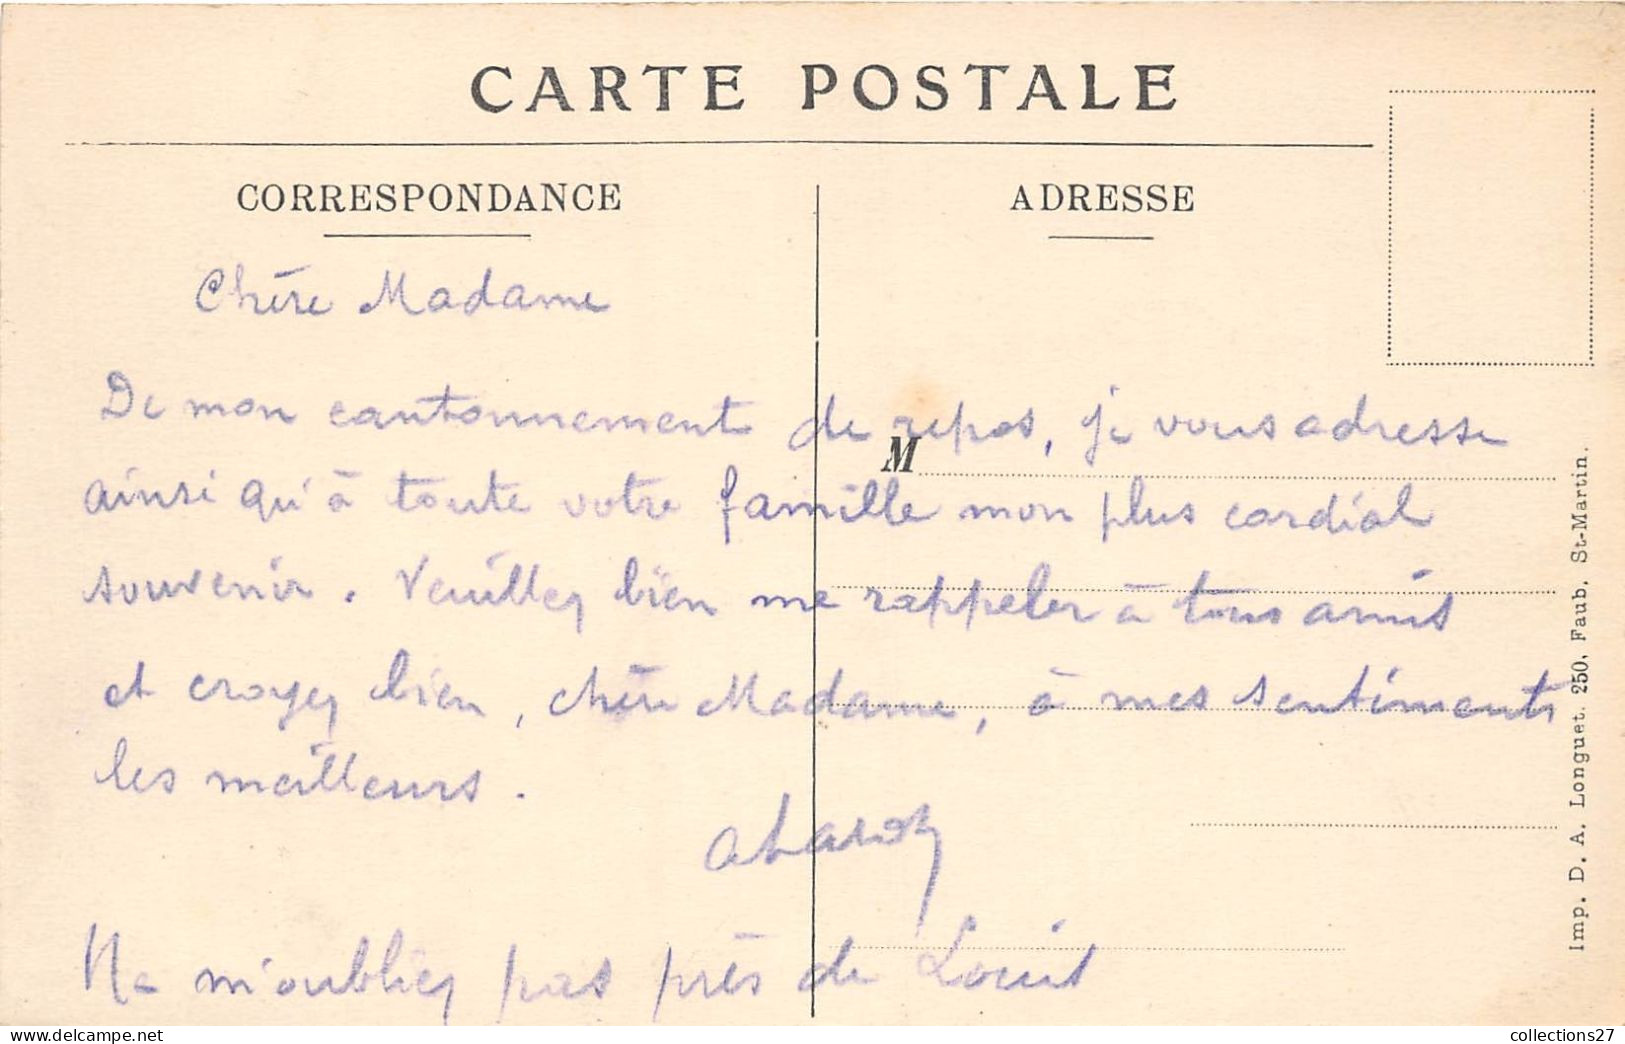 CARTE POSTALE
CORRESPONDANCE
ADRESSE
Chère Madame
De mon cantonnement de repos, je vous adresse
M
ainsi qu'à toute votre famille mon plus cordial
souvenir. Veuillez bien me rappeler à tous amis
et croyez bien, chère Madame, à mes sentiments
les meilleurs.
Ne m'oubliez pas près de Louis
Imp. D. A. Longuet. 250, Faub. St-Martin.
collections27